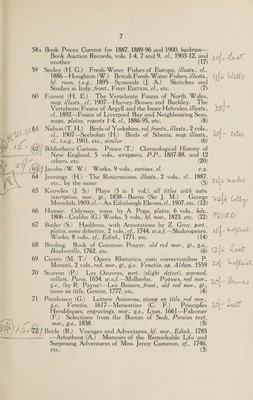 7
58A Book Prices Current for 1887, 1889-96 and 1900, buckram—
Book Auction Records, vols. 1-4, 7 and 9, cl., 1903-12, and
another (17)
59 Seeley (H. G.) Fresh-Water Fishes of Europe, illusts., cl.,
1886—Houghton (W.) British Fresh-Water Fishes, illusts.,
hf. roan, t.e.g., 1895—Symonds (J. A.) Sketches and
Studies in Italy, front., FIRST EDITION, cl., etc. (7)
60 Forrest (H. E.) The Vertebrate Fauna of North Wales,
map, illusts., cl., 1907—Harvey-Brown and Buckley. The
Vertebrate Fauna of Argyll and the Inner Hebrides, illusts.,
cl., 1892—Fauna of Liverpool Bay and Neighbouring Seas,
maps, plates, reports 1-4, cl., 1886-95, etc. (8)
61 Nelson (T. H.) Birds of Yorkshire, col. fronts., illusts., 2 vols.,
cl., 1907—Seebohm (H.) Birds of Siberia, map, illusts.,
cl., t.e.g., 1901, etc., similar (6)
62 Bibliotheca Curiosa. Prince (T.) Chronological History of
New England, 5 vols., wrappers, P.P., 1887-88, and 12
others, etc. (20)
63 Jacobs (W. W.) Works, 9 vols., various, cl. v.y.
64 Jennings (H.) The Rosicrucians, illusts., 2 vols., cl., 1887,
etc., by the same (5)
65 Knowles (J. S.) Plays (5 in 1 vol.), all titles with auto.
inscription, mor., gt., 1838—Barrie (Sir J. M.) George
Meredith, 1909, cl.—An Edinburgh Eleven, cl., 1907, etc. (12)
66 Homer. Odyssey, trans. by A. Pope, plates, 6 vols., bds.,
1806—Coolidge (G.) Works, 5 vols., hf. mor., 1823, etc. (22)
67 Butler (S.) Hudibras, with Annotations by Z. Grey, port.,
plates, some defective, 2 vols., cf., 1744, w.a.f.—Shakespeare.
Works, 8 vols., cf., Edinb., 1771, etc. (14)
68 Binding. Book of Common Prayer, old red mor., gt., g.e.,
Baskerville, 1762, etc. (6)
69 Cicero (M. T.) Opera Rhetorica, cum correctionibus P.
Manutii, 2 vols., red mor., gt., g.e., Venetiis, ap. Aldum, 1559
70 Scarron (P.) Les Oeuvres, port. (slight defect), wormed,
vellum, Paris, 1654, w.a.f.—Malherbe. Poésies, red mor.,
g.e., (by R. Payne)—Les Baisers, front., old red mor., gt.,
name on title, Genève, 1777, etc. (4)
71 Parabosco (G.) Lettere Amorose, stamp on title, red mor.,
g.e., Venetia, 1617—Menestrier (C. F.) Principes
Heraldiques, engravings, mor., g.e., Lyon, 1661—Falconer
(F.) Selections from the Bostan of Sadi, Persian text,
mor., g.e., 1838 (3)
72 Boyle (R.) Voyages and Adventures, hf. mor., Edinb., 1785
—Arbuthnot (A.) Memoirs of the Remarkable Life and
Surprising Adventures of Miss Jenny Cameron, cf., 1746,
etc. (3)